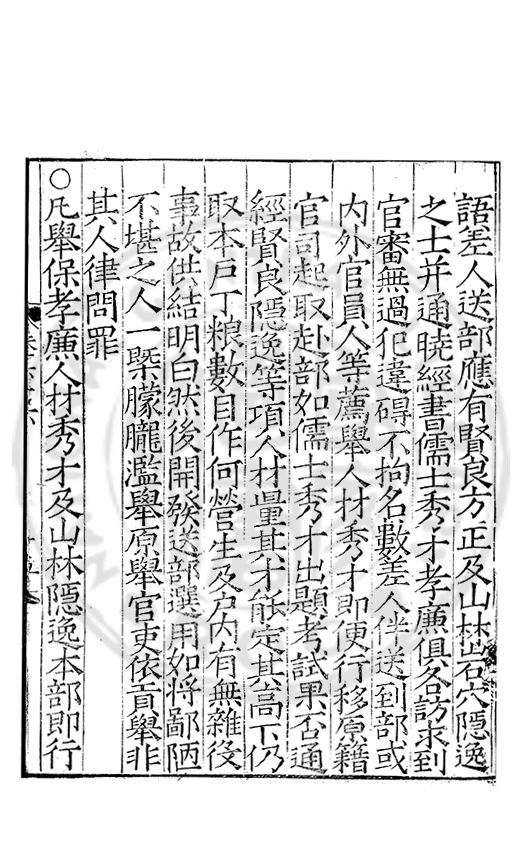 語差人送部應有賢良方正及山林岩穴隱逸
之士并通曉經書儒士秀才孝廉俱各訪求到
官審無過犯違碍不拘名數差人伴送到部或
内外官員人等薦舉人材秀才即便行移原籍
官司起取赴部如儒士秀才出題考試果否通
經賢良隱逸等項人材量其才能定其高下仍
取本戶丁粮數目作何營生及户内有無雜役
事故供結明白然後開發送部選用如將鄙陋
不堪之人一槩朦朧濫舉原舉官吏依貢舉非
其人律問罪
○凡舉保孝廉人材秀才及山林隱逸本部即行